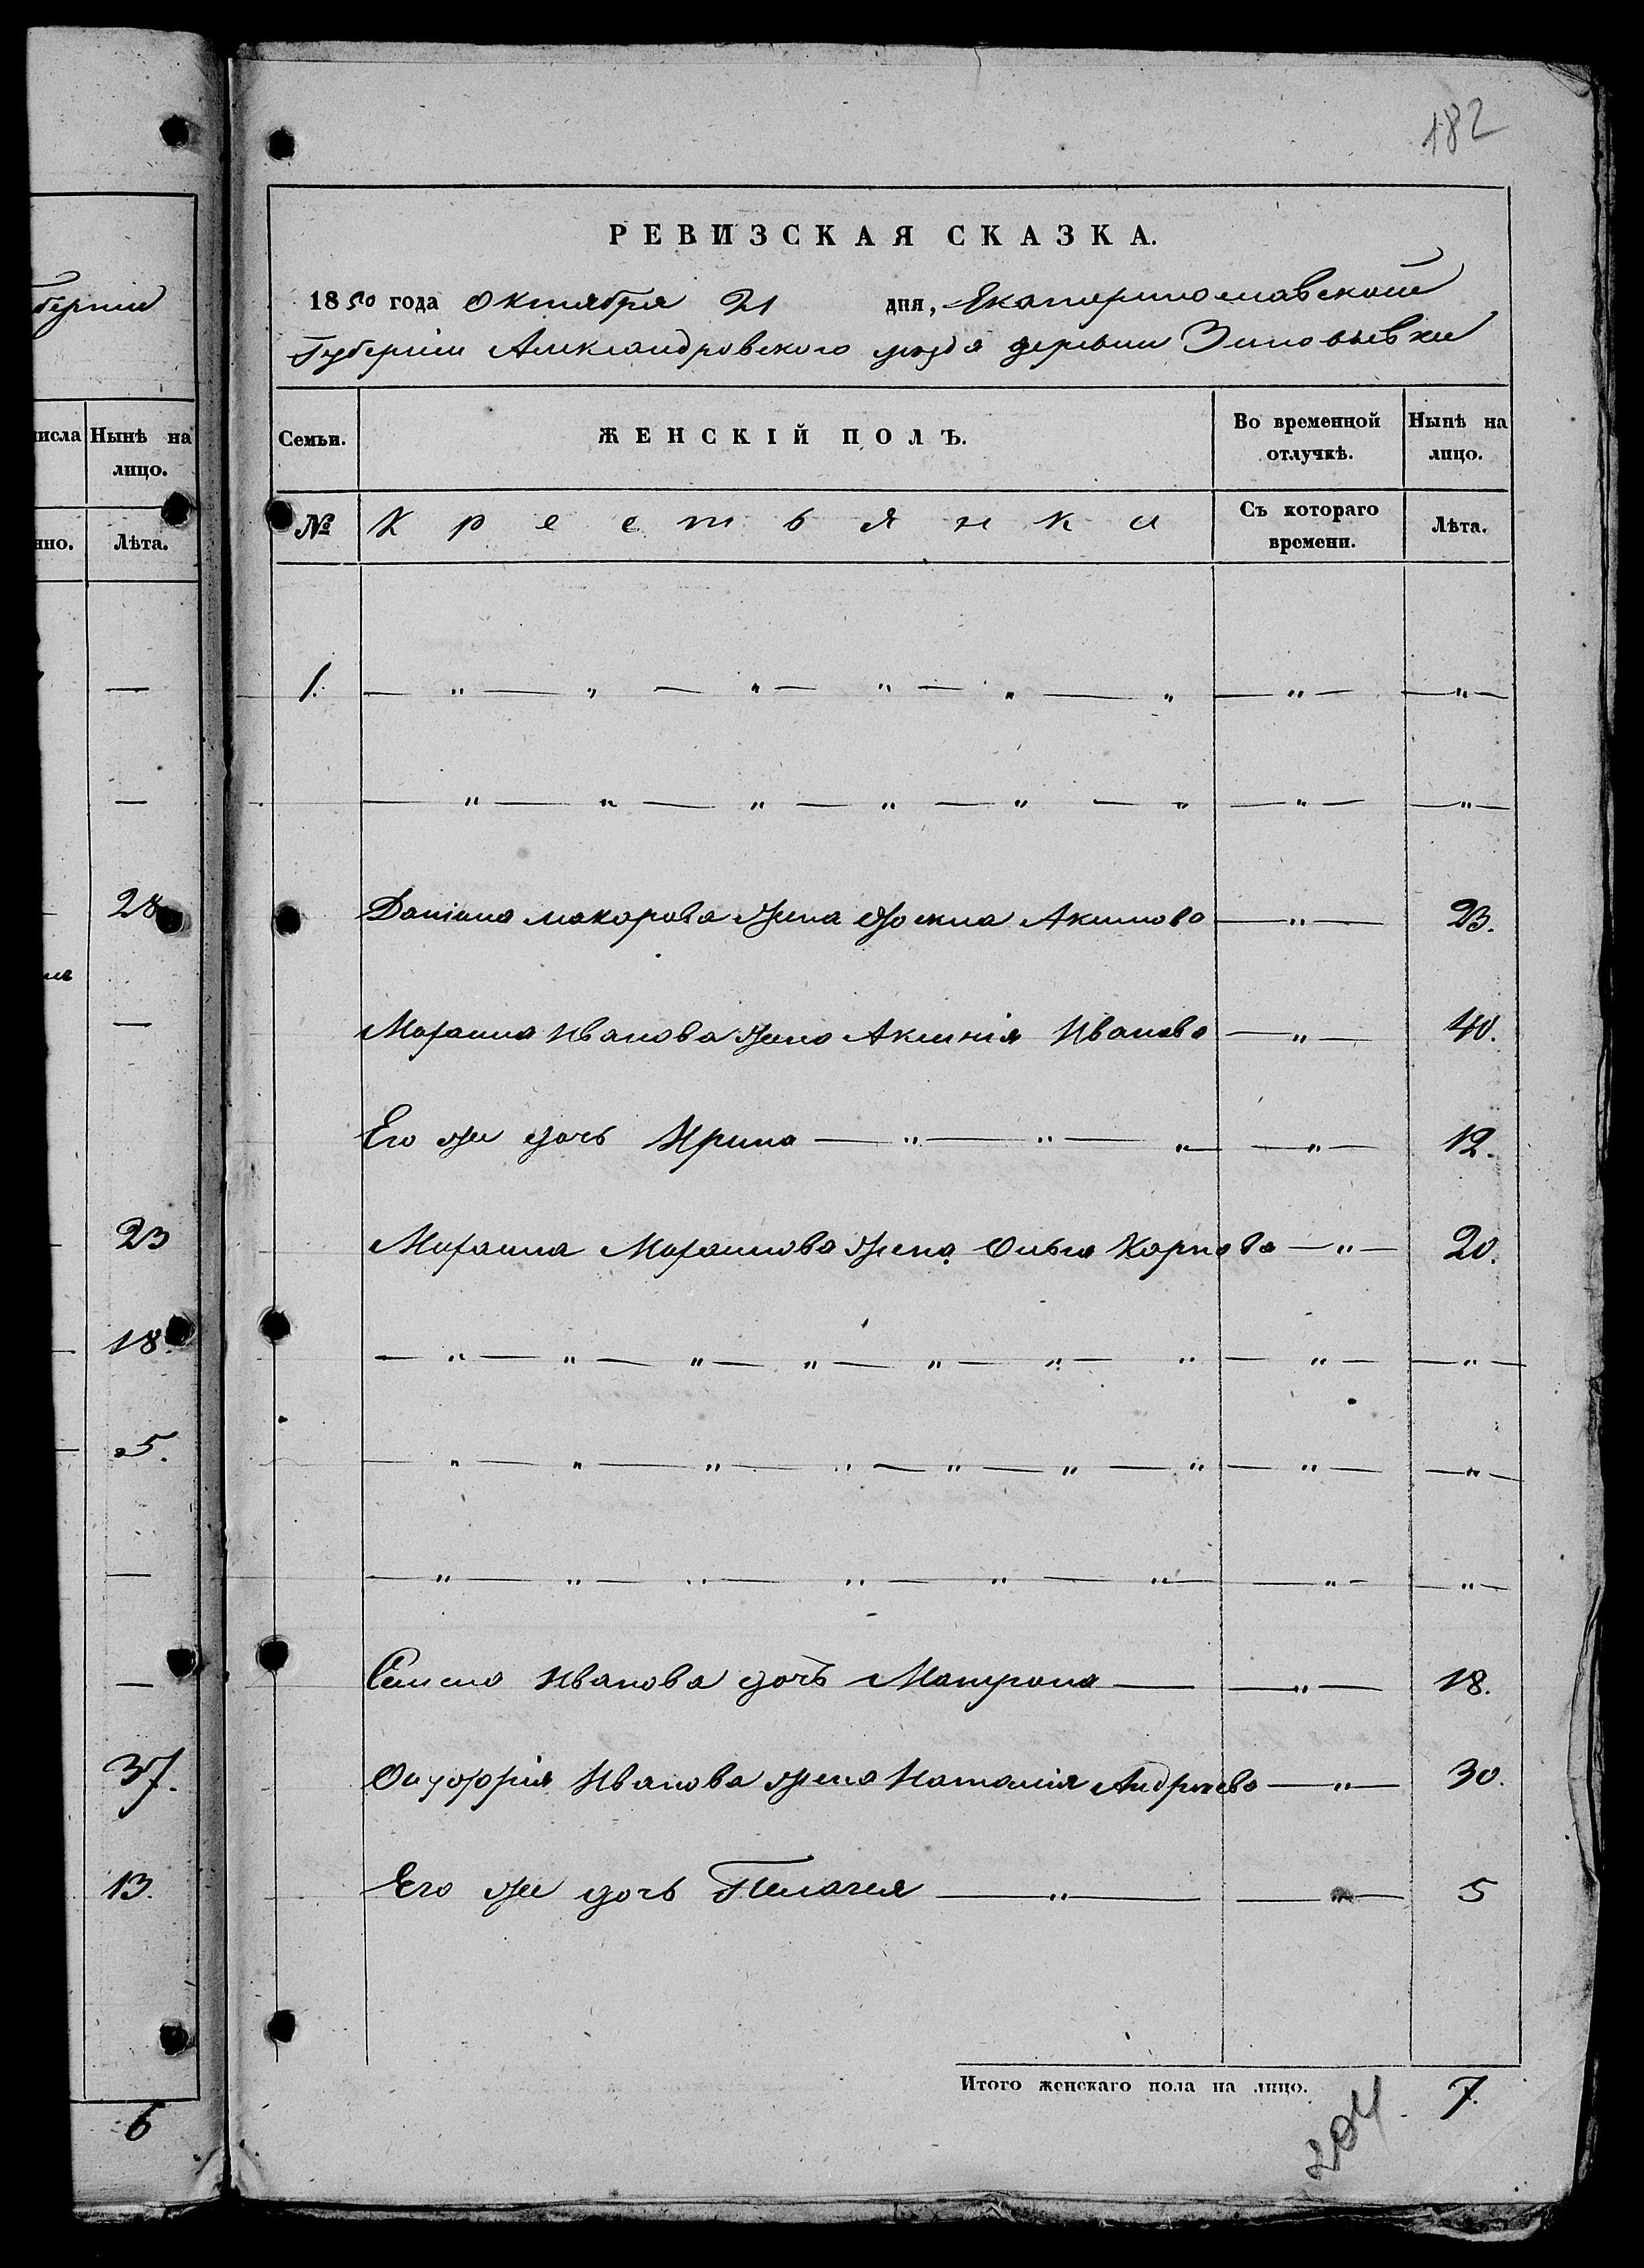 182
берніи
исла Нынѣ на
лицо.
нно. Лѣта.
—
—
28
—
23
18.
5.
—
—
37.
13.
6
РЕВИЗСКАЯ СКАЗКА.
1850 года Октября 21 дня, Екатеринославской
Губерніи Александровского уезда деревни Зиновьевки
Семьи. ЖЕНСКІЙ ПОЛЪ. Во временной отлучкѣ. Нынѣ на лицо.
№ Крестьянки Съ котораго времени. Лѣта.
1. — " — " — " — " — " — " — " — — " —
— " — " — " — " — " — " — " — — " —
Даніила Макорова жена Акимова — " — 23.
Михаила Иванова жена Аксинія Иванова — " — 40.
Его же дочь Ирина — " — " — " — " — 12.
Михаила Михаилова жена Ольга Карпова — " — 20.
— " — " — " — " — " — " — " — " — — " —
— " — " — " — " — " — " — " — " — — " —
— " — " — " — " — " — " — — " — — " —
Семена Иванова дочъ Матрона — — " — 18.
Онуфрія Иванова жена Наталія Андреева — " — 30.
Его же дочь Пелагея — " — — " — 5
Итого женскаго пола на лицо. 7.
204